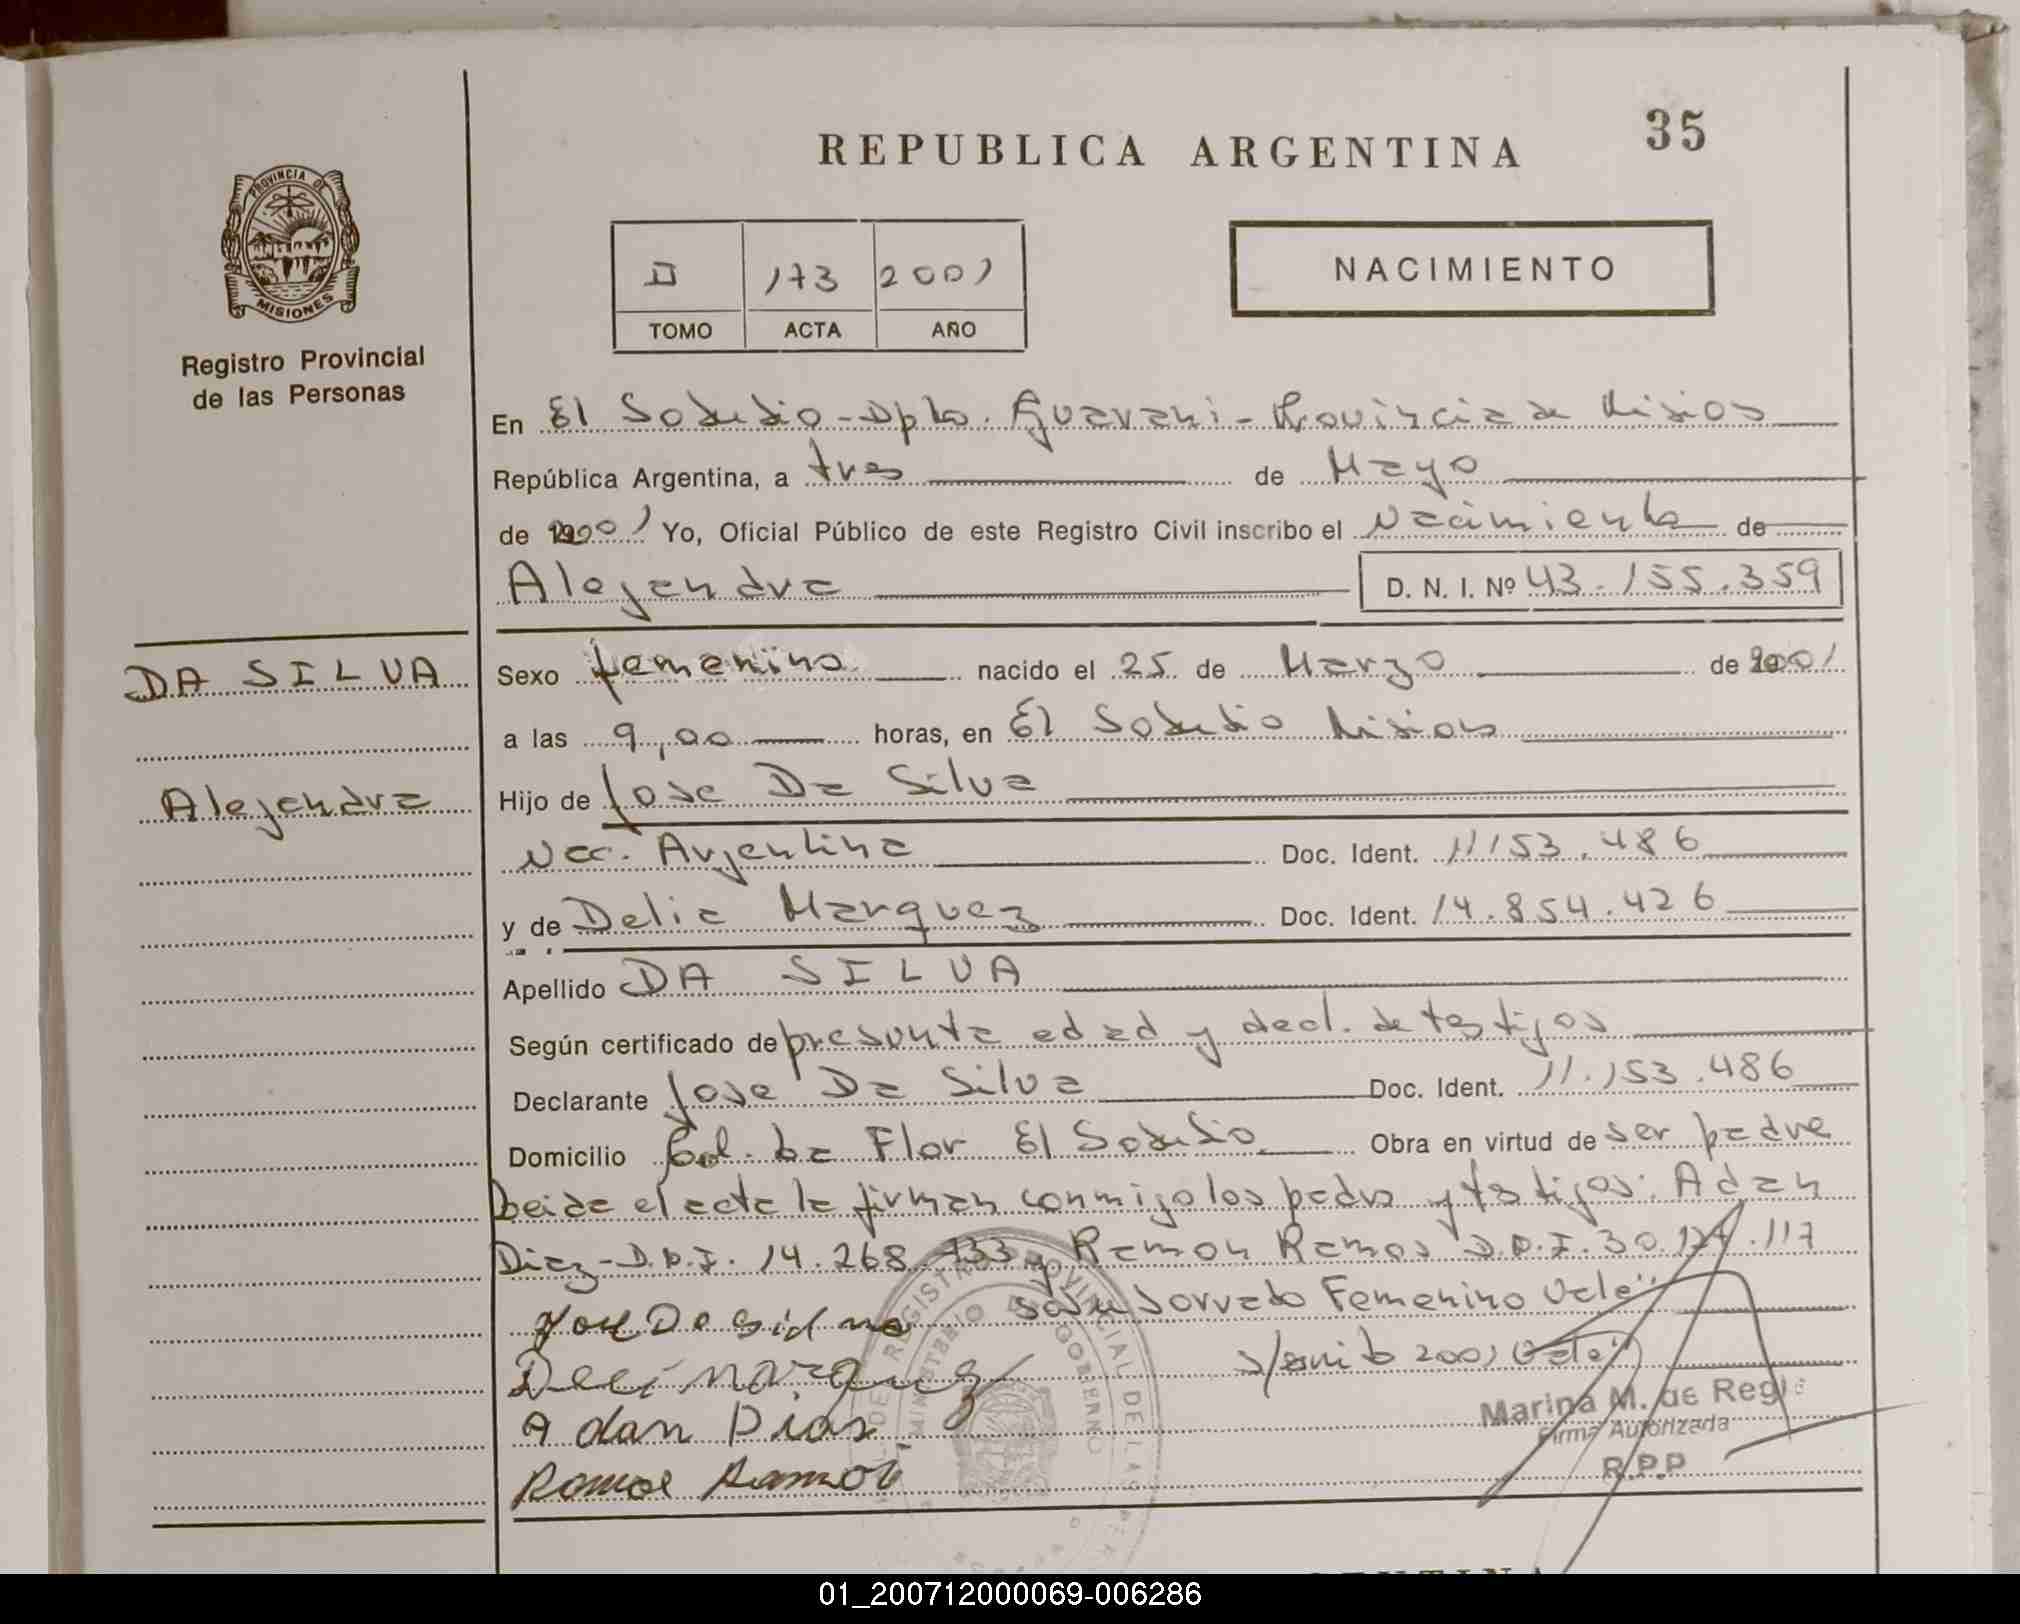 REPUBLICA ARGENTINA
35
PROVINCIA DE
MISIONES
Registro Provincial
de las Personas
II 173 2001
TOMO ACTA AÑO
NACIMIENTO
En El Soberbio - Dpto. Guarani - Provincia de Misiones
República Argentina, a tres de Mayo
de 2001 Yo, Oficial Público de este Registro Civil inscribo el Nacimiento de
Alejandra D. N. I. Nº 43.155.359
DA SILVA
Alejandra
Sexo femenino nacido el 25 de Marzo de 2001
a las 9,00 horas, en El Soberbio Misiones
Hijo de Jose Da Silva
Nac. Argentina Doc. Ident. 11153.486
y de Delia Marquez Doc. Ident. 14.854.426
Apellido DA SILVA
Según certificado de presunta edad y decl. de testigos
Declarante Jose Da Silva Doc. Ident. 11.153.486
Domicilio Col. La Flor El Soberbio Obra en virtud de ser padre
Leida el acta la firman conmigo los padres y testigos: Adan
Diaz - D.N.I. 14.268.733 y Ramon Ramos D.N.I. 30.124.117
Sobre borrado Femenino Vale
s/ 2001 Vale
Marquez
Adan Dias
Ramos
Marina M. de Regi
Firma Autorizada
R.P.P
REGISTRO PROVINCIAL DE LAS
MINISTERIO DE GOBIERNO
01_200712000069-006286